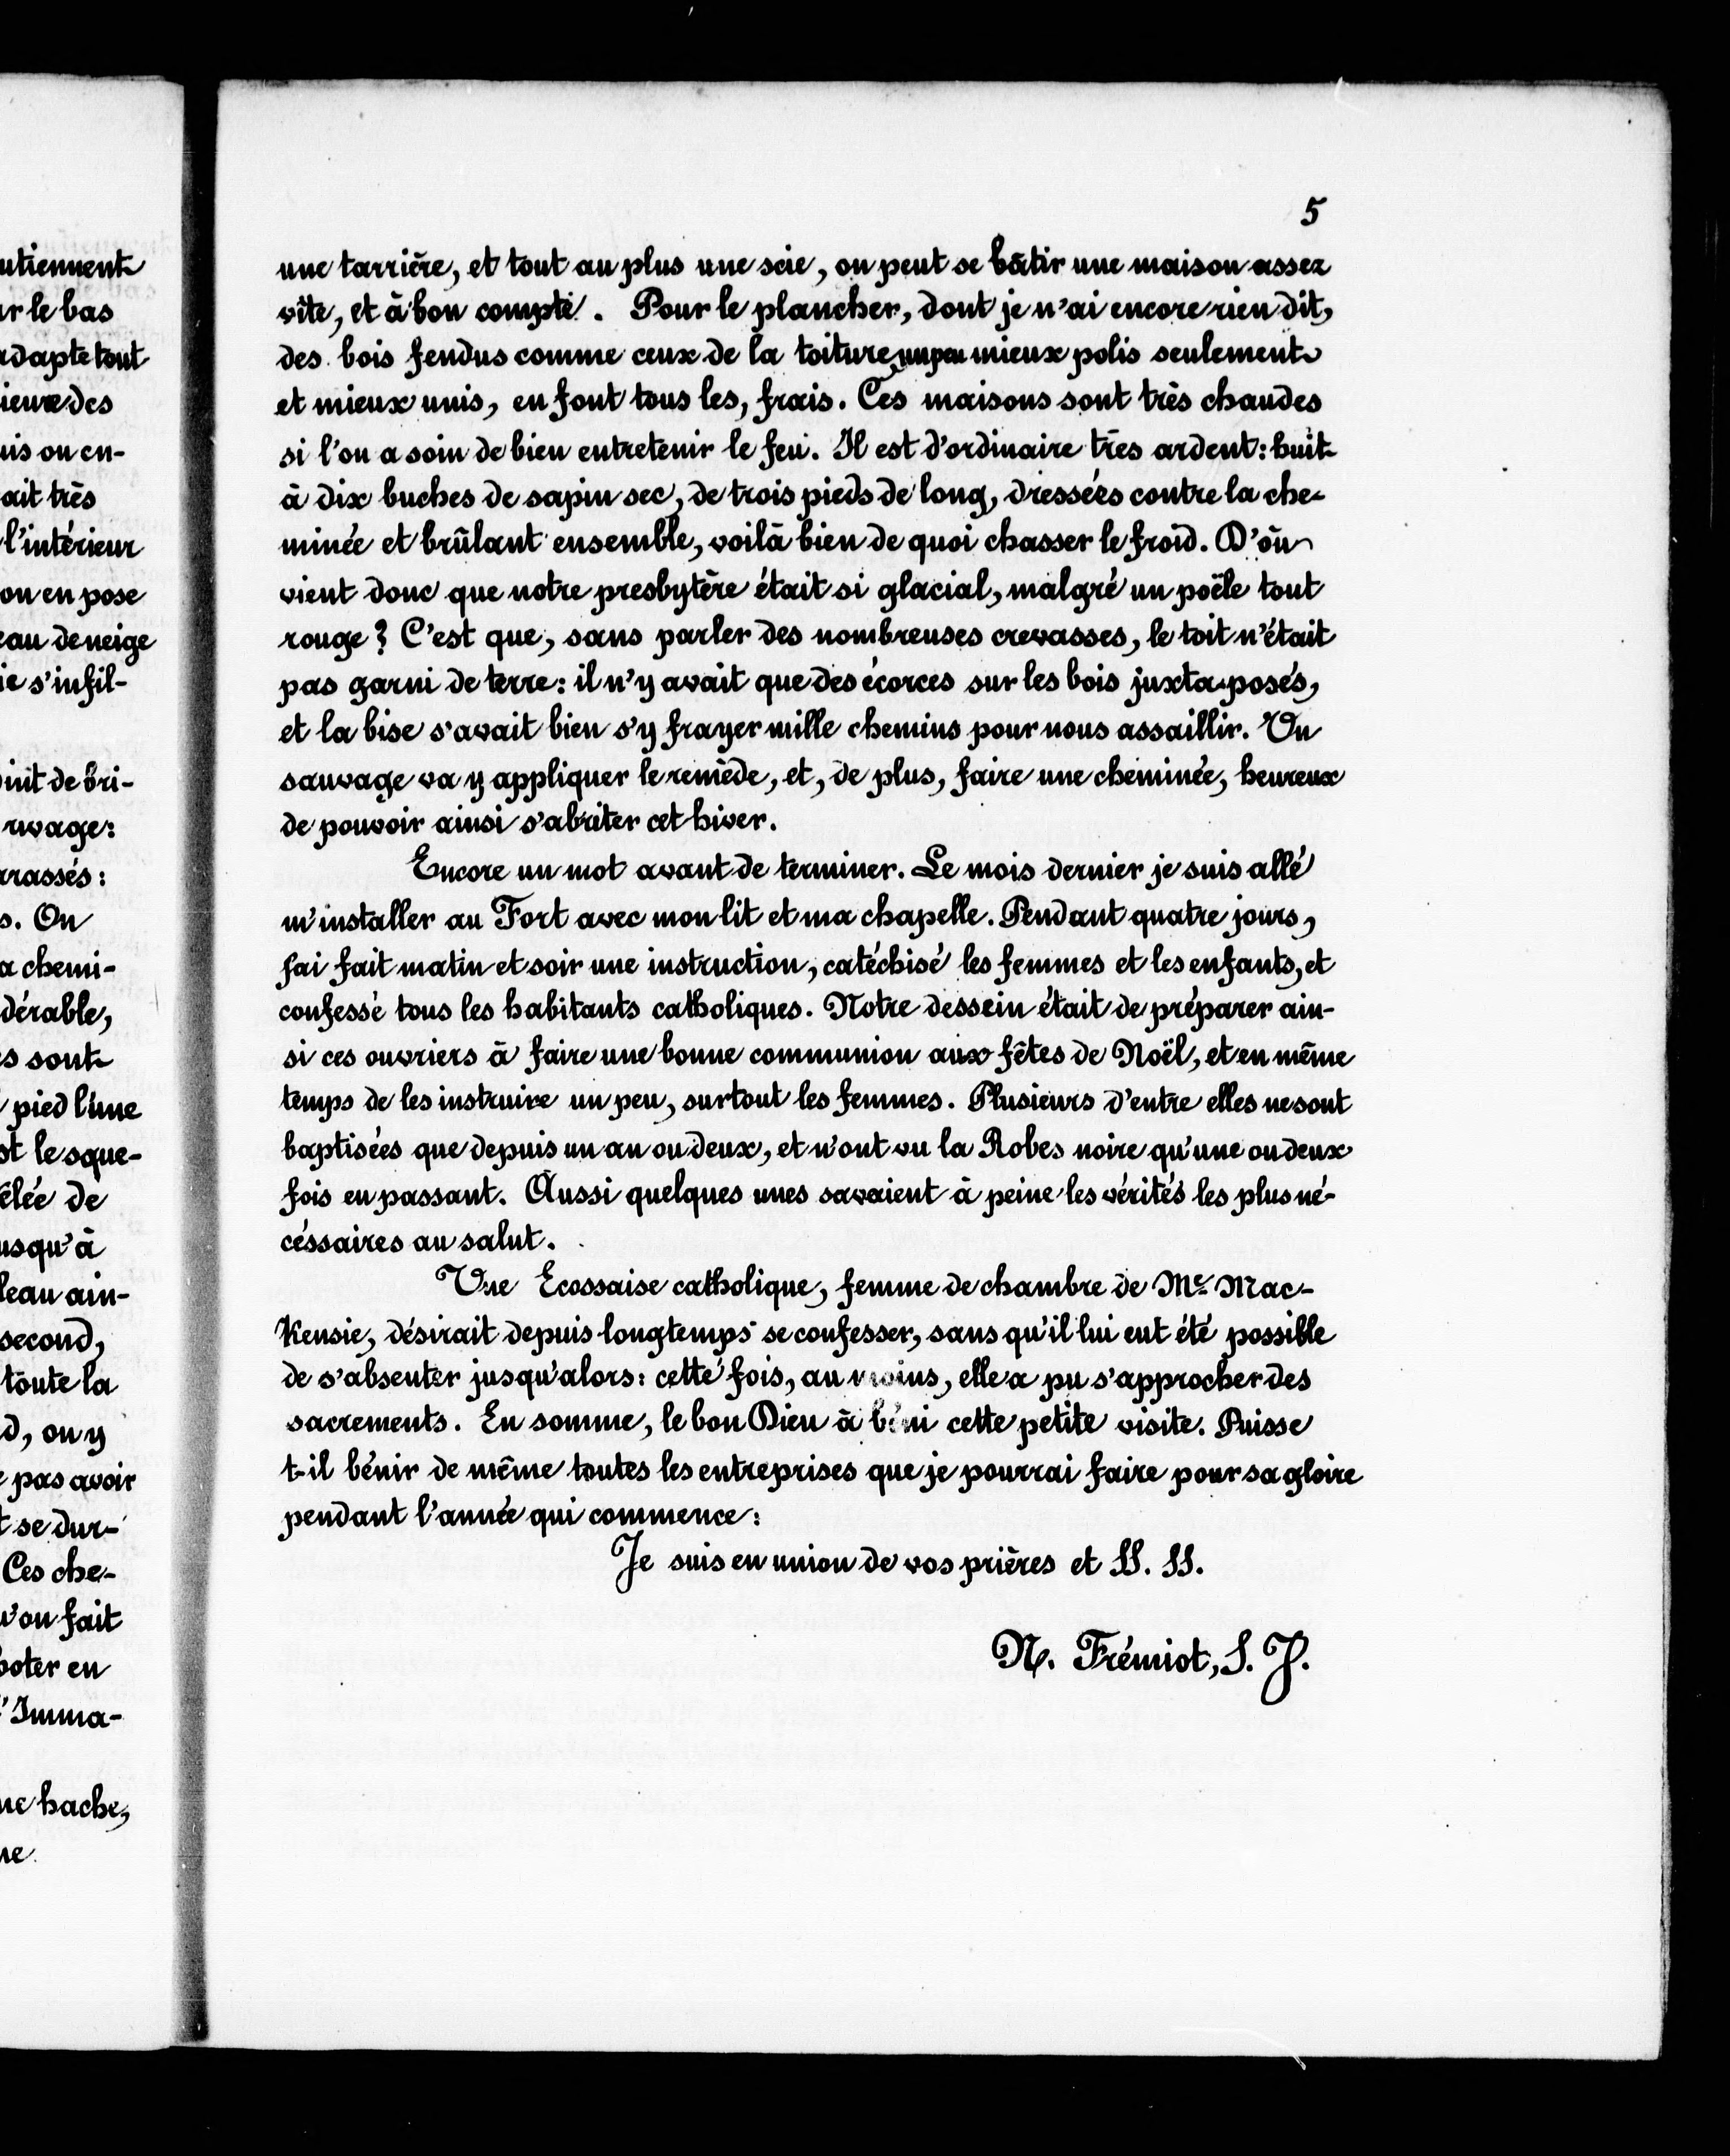 utiennent
ur le bas
adapte tout
ieure des
uis on en-
ait très
l'intérieur
on en pose
eau de neige
ie s'infil-
uit de bri-
rivage:
rrassés:
s. On
a chemi-
dérable,
s sont
pied l'une
st le sque-
êlée de
usqu'à
leau ain-
second,
toute la
d, on y
e pas avoir
t se dur-
Ces che-
u'on fait
boter en
l'Imma-
ne hache,
ne
5
une tarrière, et tout au plus une scie, on peut se bâtir une maison assez
vîte, et à bon compte. Pour le plancher, dont je n'ai encore rien dit,
des bois fendus comme ceux de la toiture, un peu mieux polis seulement
et mieux unis, en font tous les, frais. Ces maisons sont très chaudes
si l'on a soin de bien entretenir le feu. Il est d'ordinaire très ardent: huit
à dix buches de sapin sec, de trois pieds de long, dressées contre la che-
minée et brûlant ensemble, voilà bien de quoi chasser le froid. D'où
vient donc que notre presbytère était si glacial, malgré un poële tout
rouge? C'est que, sans parler des nombreuses crevasses, le toit n'était
pas garni de terre: il n'y avait que des écorces sur les bois juxta-posés,
et la bise s'avait bien s'y frayer mille chemins pour nous assaillir. Un
sauvage va y appliquer le remède, et, de plus, faire une cheminée, heureux
de pouvoir ainsi s'abriter cet hiver.
Encore un mot avant de terminer. Le mois dernier je suis allé
m'installer au Fort avec mon lit et ma chapelle. Pendant quatre jours,
j'ai fait matin et soir une instruction, catéchisé les femmes et les enfants, et
confessé tous les habitants catholiques. Notre dessein était de préparer ain-
si ces ouvriers à faire une bonne communion aux fêtes de Noël, et en même
temps de les instruire un peu, surtout les femmes. Plusieurs d'entre elles ne sont
baptisées que depuis un an ou deux, et n'ont vu la Robes noire qu'une ou deux
fois en passant. Aussi quelques unes savaient à peine les vérités les plus né-
céssaires au salut.
Une Ecossaise catholique, femme de chambre de Mc Mac-
Kensie, désirait depuis longtemps se confesser, sans qu'il lui eut été possible
de s'absenter jusqu'alors: cette fois, au moins, elle a pu s'approcher des
sacrements. En somme, le bon Dieu à béni cette petite visite. Puisse
t-il bénir de même toutes les entreprises que je pourrai faire pour sa gloire
pendant l'année qui commence:
Je suis en union de vos prières et SS. SS.
N. Frémiot, S. J.